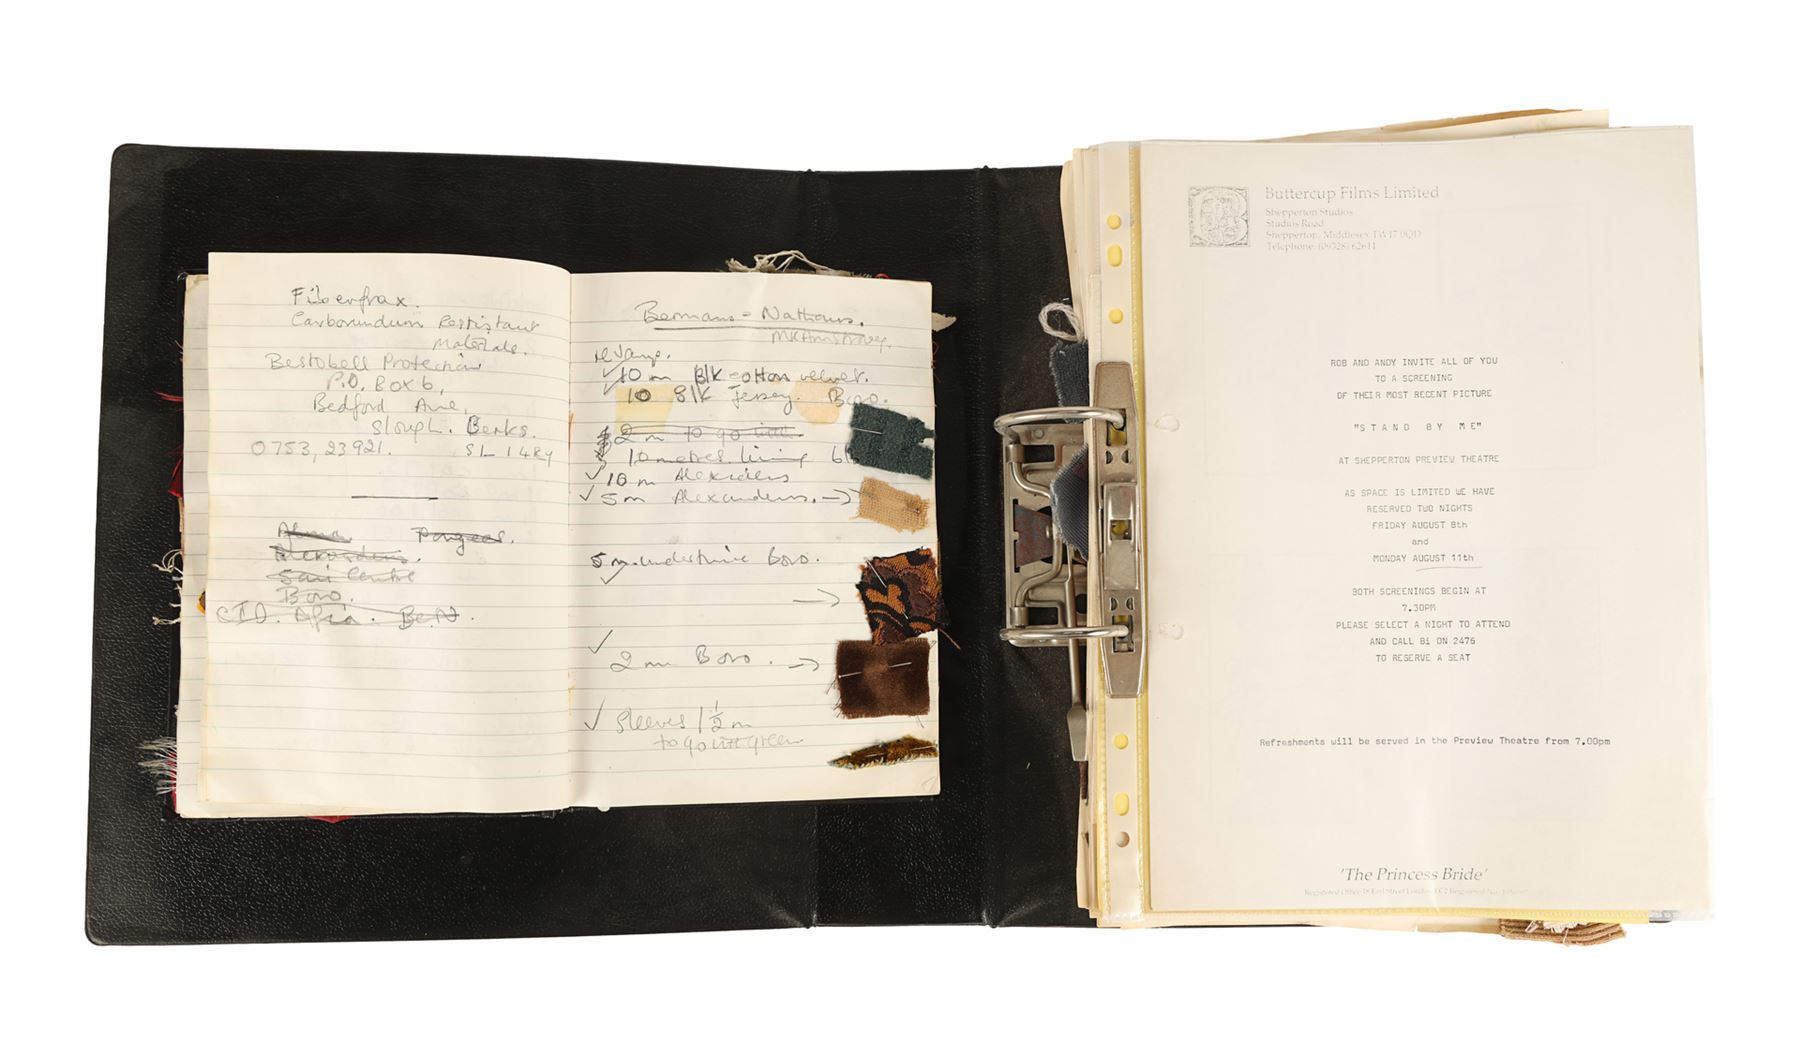 Fiberfrax.
Carborundum Resistant
Materials.
Bestobell Protection
P.O. Box 6,
Bedford Ave,
Slough. Berks.
0753, 23921. SL 1 4RY
Pongees.
Alexanders.
Sari Centre
Boro.
Bermans - Nathans.
revamp.
10 m Blk cotton velvet.
10 Blk Jersey. Boro.
2 m to go
10 metres lining
10 m
5 m Alexanders. →
5 m. Boro.
→
2 m Boro. →
Sleeves 1 1/2 m
to go with green
Buttercup Films Limited
Shepperton Studios
Studios Road
Shepperton, Middlesex TW17 0QD
Telephone: (09328) 62611
ROB AND ANDY INVITE ALL OF YOU
TO A SCREENING
OF THEIR MOST RECENT PICTURE
"STAND BY ME"
AT SHEPPERTON PREVIEW THEATRE
AS SPACE IS LIMITED WE HAVE
RESERVED TWO NIGHTS
FRIDAY AUGUST 8th
and
MONDAY AUGUST 11th
BOTH SCREENINGS BEGIN AT
7.30PM
PLEASE SELECT A NIGHT TO ATTEND
AND CALL Bi ON 2476
TO RESERVE A SEAT
Refreshments will be served in the Preview Theatre from 7.00pm
'The Princess Bride'